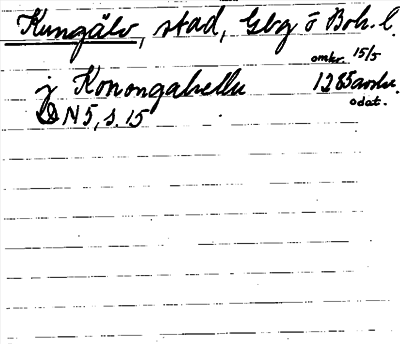 Kungälv, stad, Gbg ö Boh. l.
omkr. 15/5
j Konongahellu 1285 avskr.
odat.
DN 5, s. 15